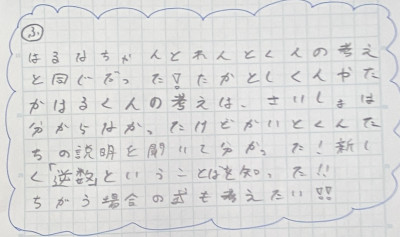 ふ
はるなちかんとれんとくんの考え
と同じだった!たかとしくんやた
かはるくんの考えは、さいしょは
分からなか、たけどかいとくんた
ちの説明を聞いて分か、た!新し
く「逆数」ということばを知った!!
ちがう場合の式も考えたい!!